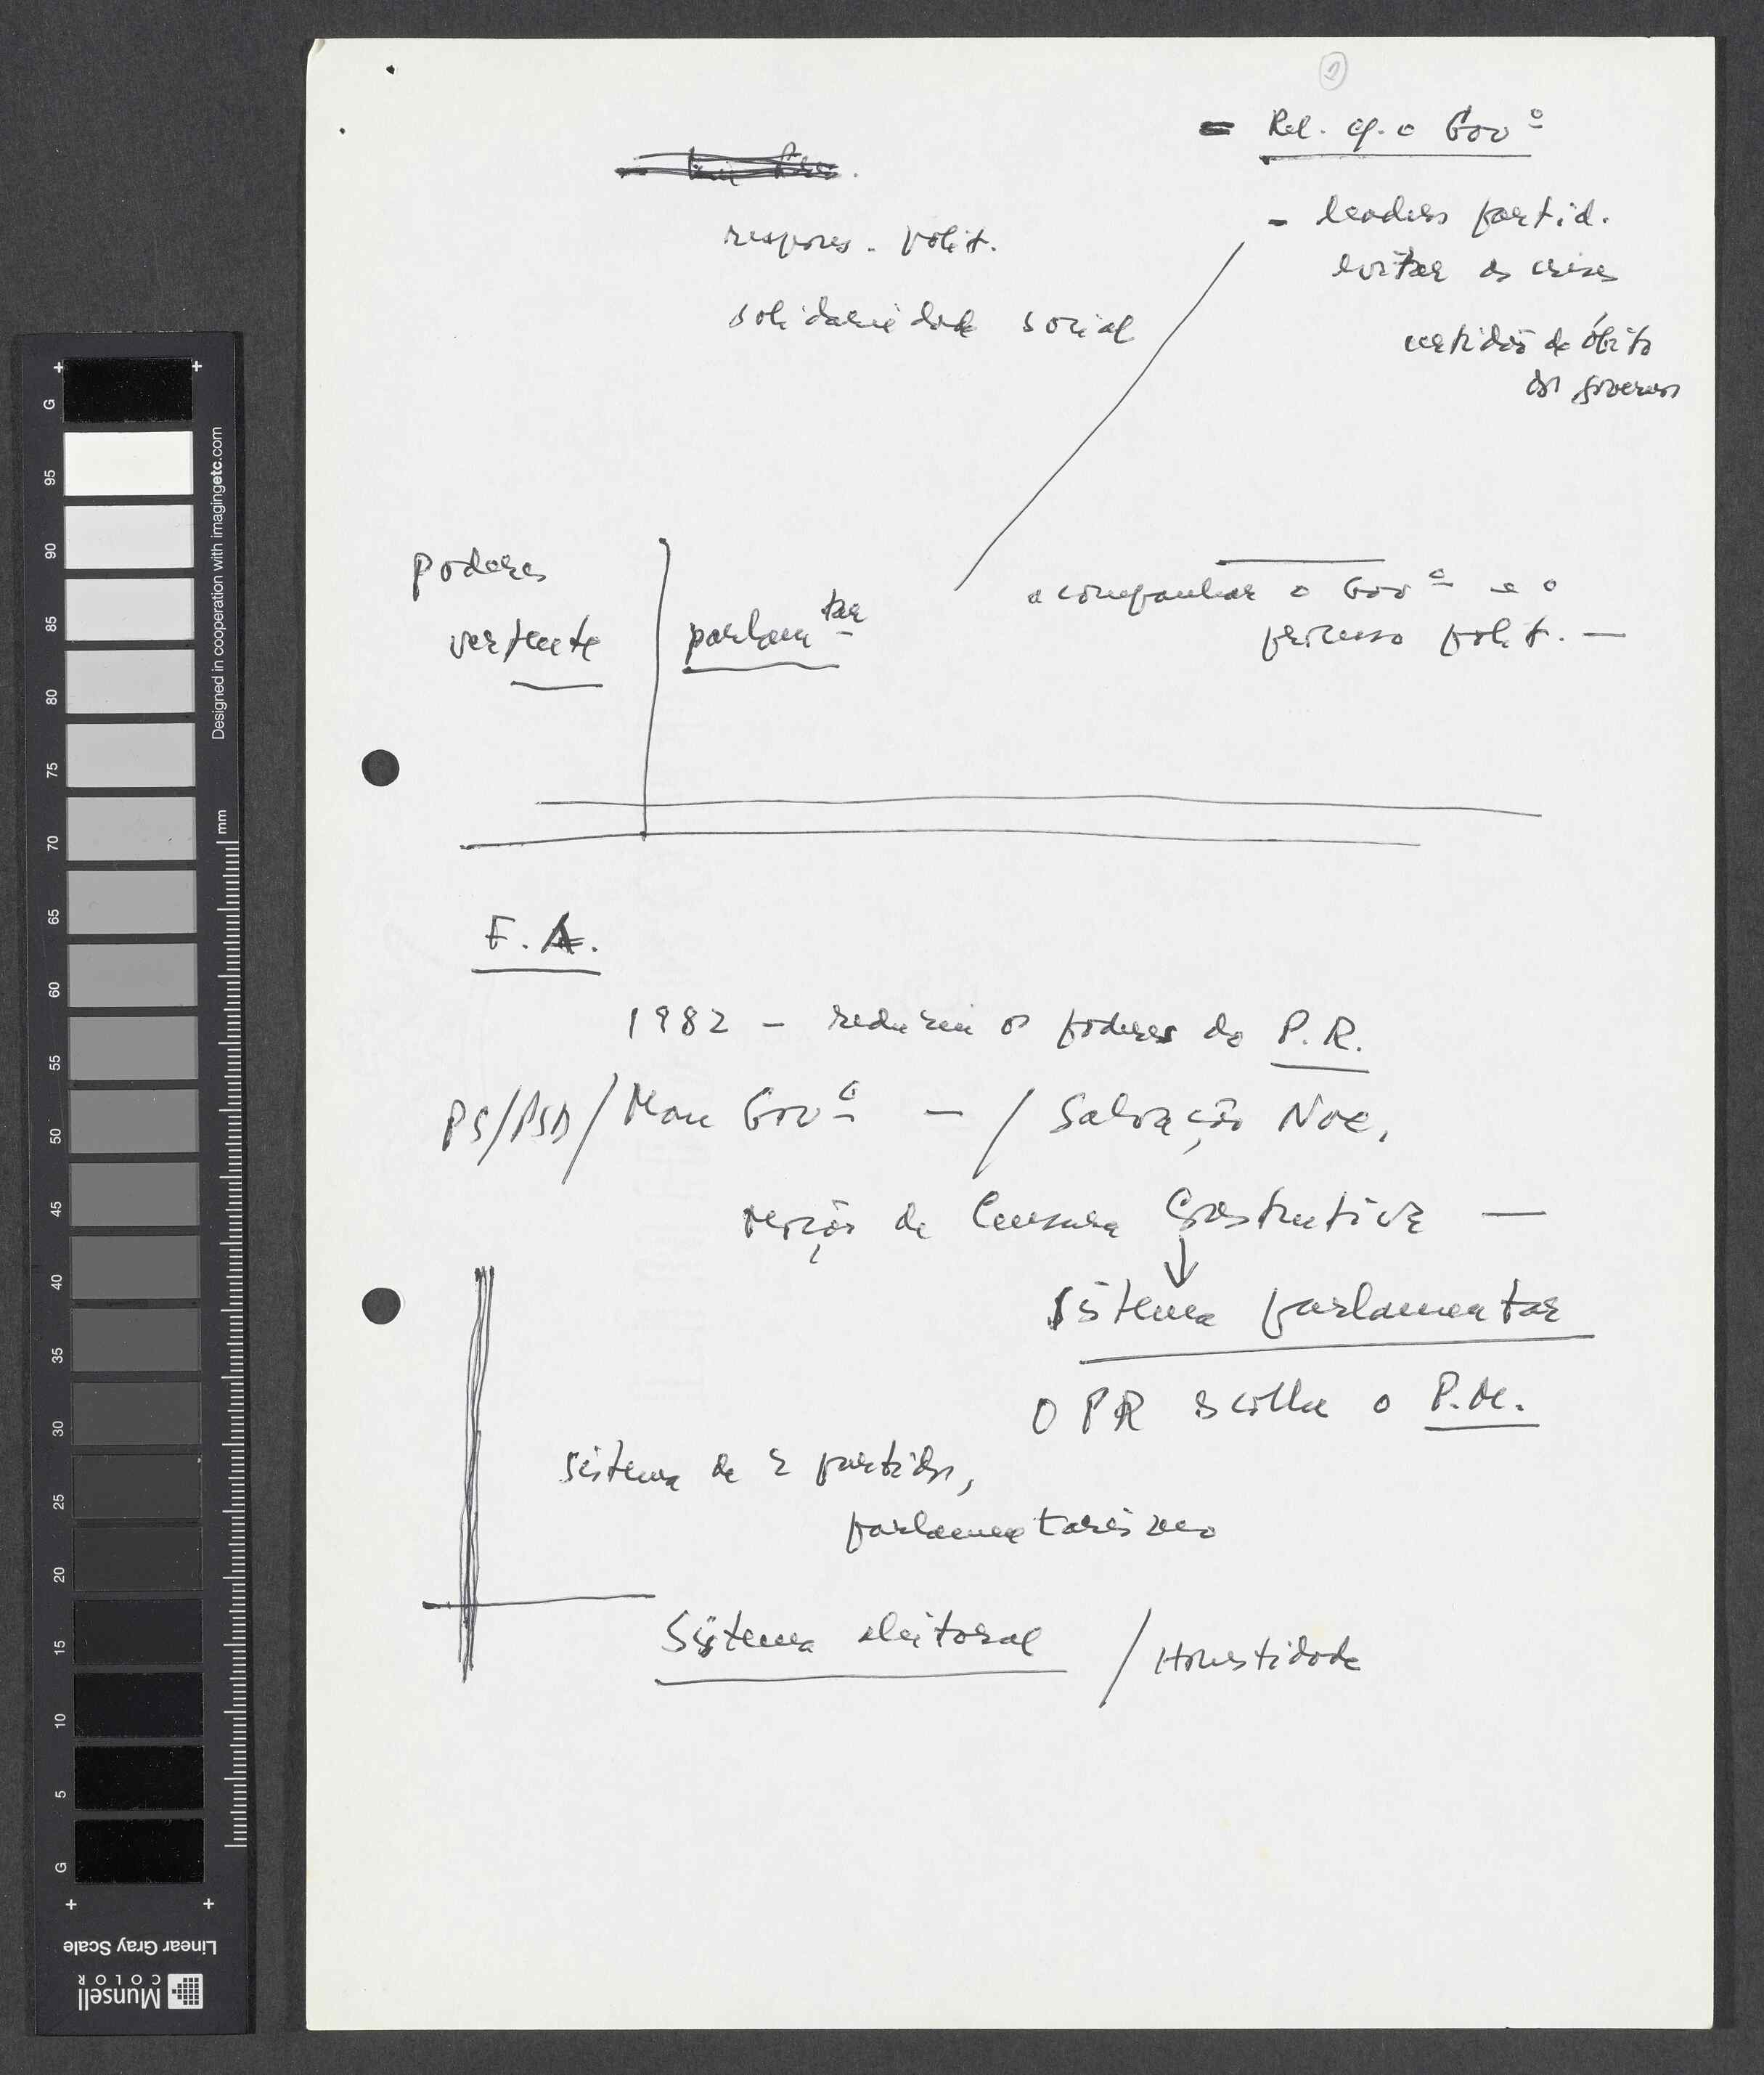 = Rel. c/. o Govº
respons. polit.
- leaders partid.
evitar as crises
solidariedade social
certidão de óbito
dos governos
poderes
vertente
parlamtar
acompanhar o Govº e o
processo polit. —
F.A.
1982 - reduziu os poderes do P.R.
PS/PSD/Mau Govº — / Salvação Nac.
moção de Censura Construtiva —
↓
Sistema parlamentar
O PR escolhe o P.M.
sistema de 2 partidos,
parlamentarismo
Sistema eleitoral / Honestidade
G
95
90
85
80
75
70
65
60
55
50
45
40
35
30
25
20
15
10
5
G
mm
Designed in cooperation with imagingetc.com
Linear Gray Scale
Munsell
COLOR